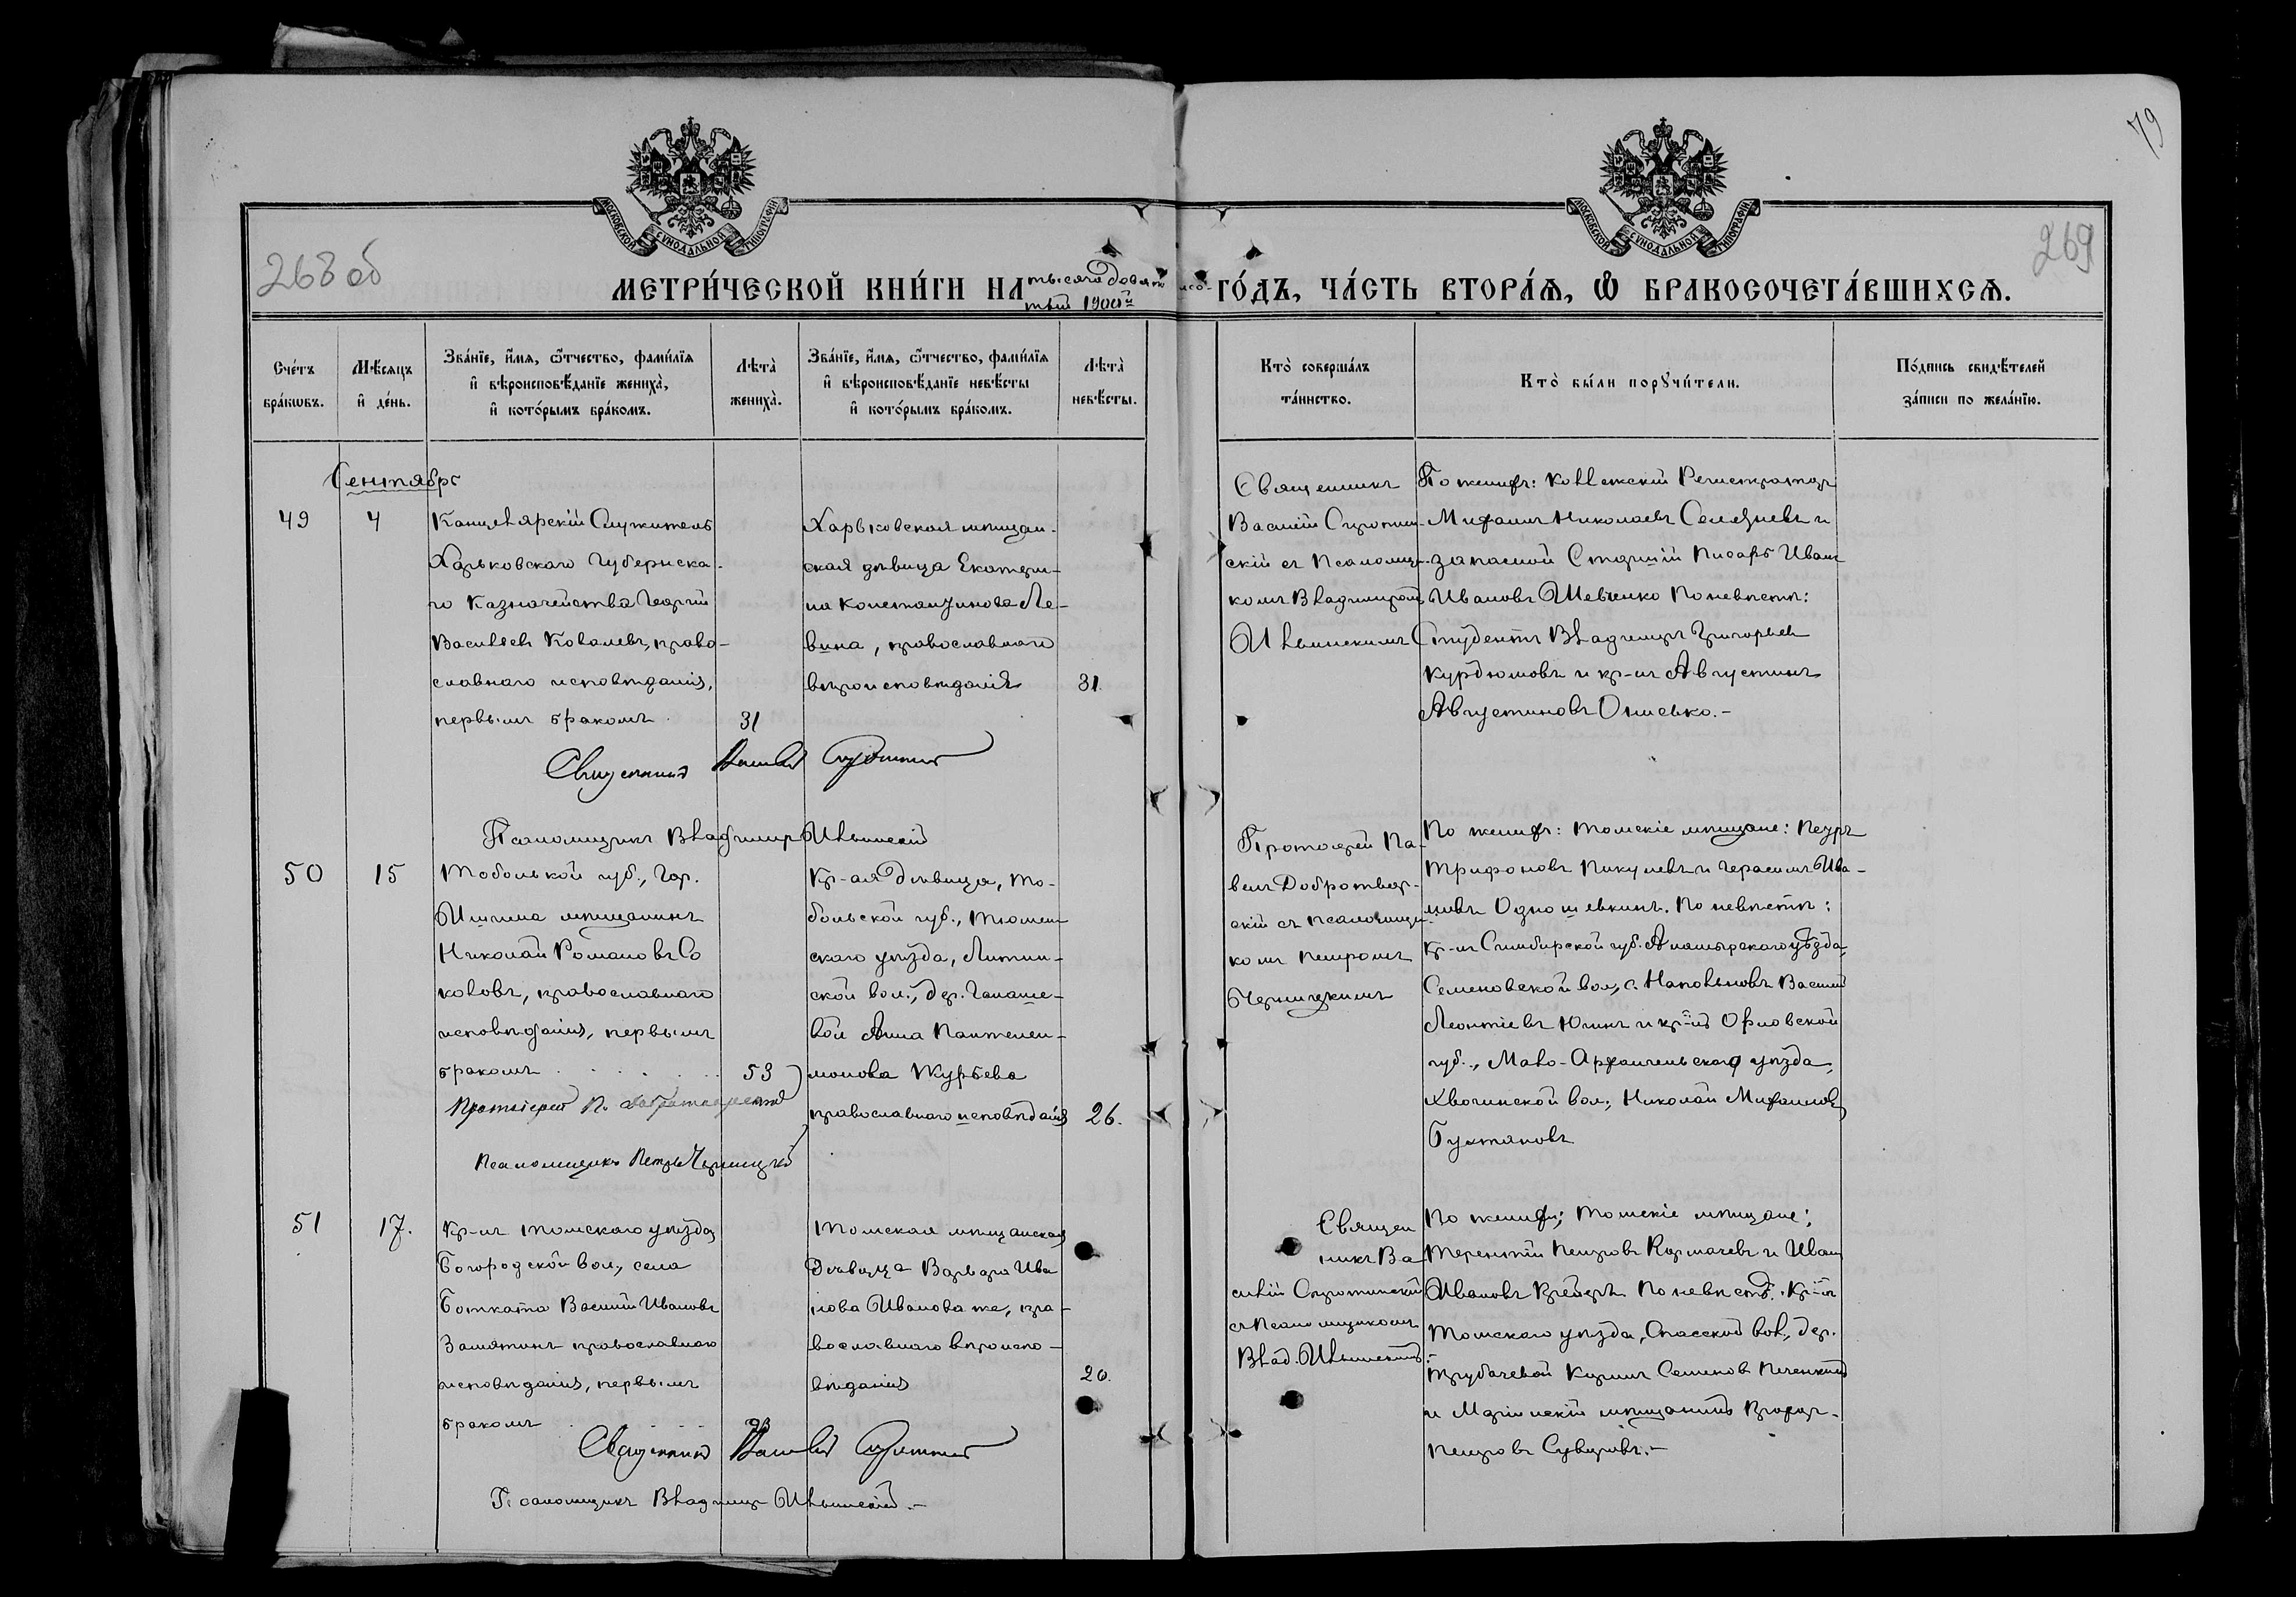 79
268 об
269
МОСКОВСКОЙ СѴНОДАЛЬНОЙ ТИПОГРАФІИ
МОСКОВСКОЙ СѴНОДАЛЬНОЙ ТИПОГРАФІИ
МЕТРИ́ЧЕСКОЙ КНИ́ГИ НА тысяча девятисо-
тый 1900й ГО́ДЪ, ЧА́СТЬ ВТОРА́Ѧ, Ѡ БРАКОСОЧЕТА́ВШИХСѦ.
Сче́тъ бра́кѡвъ.
Мѣ́сяцъ и҆ де́нь.
Зва́нїе, и҆́мя, ѻ҆́тчество, фами́лїя
и҆ вѣроисповѣ́данїе жениха̀,
и҆ кото́рымъ бра́комъ.
Лѣта̀ жениха̀.
Зва́нїе, и҆́мя, ѻ҆́тчество, фами́лїя
и҆ вѣроисповѣ́данїе невѣ́сты
и҆ кото́рымъ бра́комъ.
Лѣта̀ невѣ́сты.
Кто̀ соверша́лъ та́инство.
Кто̀ бы́ли порꙋчи́тели.
По́дпись свидѣ́телей за́писи по жела́нїю.
Сентябрь
49
4
Канцелярскій Служитель
Харьковскаго Губернска-
го Казначейства Георгій
Васильевъ Ковалевъ, право-
славнаго исповѣданія,
первымъ бракомъ
31
Харьковская мѣщан-
ская дѣвица Екатери-
на Константинова Ле-
вина, православнаго
вѣроисповѣданія
31.
Священникъ
Василій Сиротин-
скій съ Псаломщи-
комъ Владиміромъ
Ильинскимъ
По женихѣ: Коллежскій Регистраторъ
Михаилъ Николаевъ Селезневъ и
запасной Старшій Писарь Иванъ
Ивановъ Шевченко По невѣстѣ:
Студентъ Владиміръ Григорьевъ
Курдюмовъ и кр-нъ Августинъ
Августиновъ Онисько.-
Священникъ Василій Сиротинскій
Псаломщикъ Владиміръ Ильинскій
50
15
Тобольской губ., гор.
Ишима мѣщанинъ
Николай Романовъ Со
коловъ, православнаго
исповѣданія, первымъ
бракомъ
53
Кр-ая дѣвица, То-
больской губ., Тюмен-
скаго уѣзда, Липчин-
ской вол., дер.
вой Анна Пантелеи-
монова Журбева
православнаго исповѣданія
26.
Протоіерей Па-
велъ Добротвор-
скій съ псаломщи-
комъ Петромъ
Черницкимъ
По женихѣ: томскіе мѣщане: Петръ
Трифоновъ Пикулевъ и Герасимъ Ива-
новъ Одношевкинъ. По невѣстѣ:
Кр-нъ Симбирской губ. уѣзда,
Семеновской вол., с. Василій
Леонтіевъ Юнинъ и кр-нъ Орловской
губ., Мало-Архангельскаго уѣзда,
вол., Николай Михаиловъ
Протоіерей П. Добротворскій
Псаломщикъ Петръ Черницкій
51
17.
Кр-нъ томскаго уѣзда
Богородской вол., села
Василій Ивановъ
Замятинъ православнаго
исповѣданія, первымъ
бракомъ
Томская мѣщанская
дѣвица Варвара Ива
нова Иванова же, пра-
вославнаго вѣроиспо-
вѣданія
20.
Священ
никъ Ва
силій Сиротинскій
съ Псаломщикомъ
Влад. Ильинскимъ.
По женихѣ; Томскіе мѣщане;
Терентій Петровъ Кормачевъ и Иванъ
Ивановъ По невѣстѣ: Кр-нъ
Томскаго уѣзда, Спасской вол., дер.
Трубачевой Семеновъ
и Маріинскій мѣщанинъ
Петровъ Суворовъ.-
Священникъ Василій Сиротинскій
Псаломщикъ Владиміръ Ильинскій.-